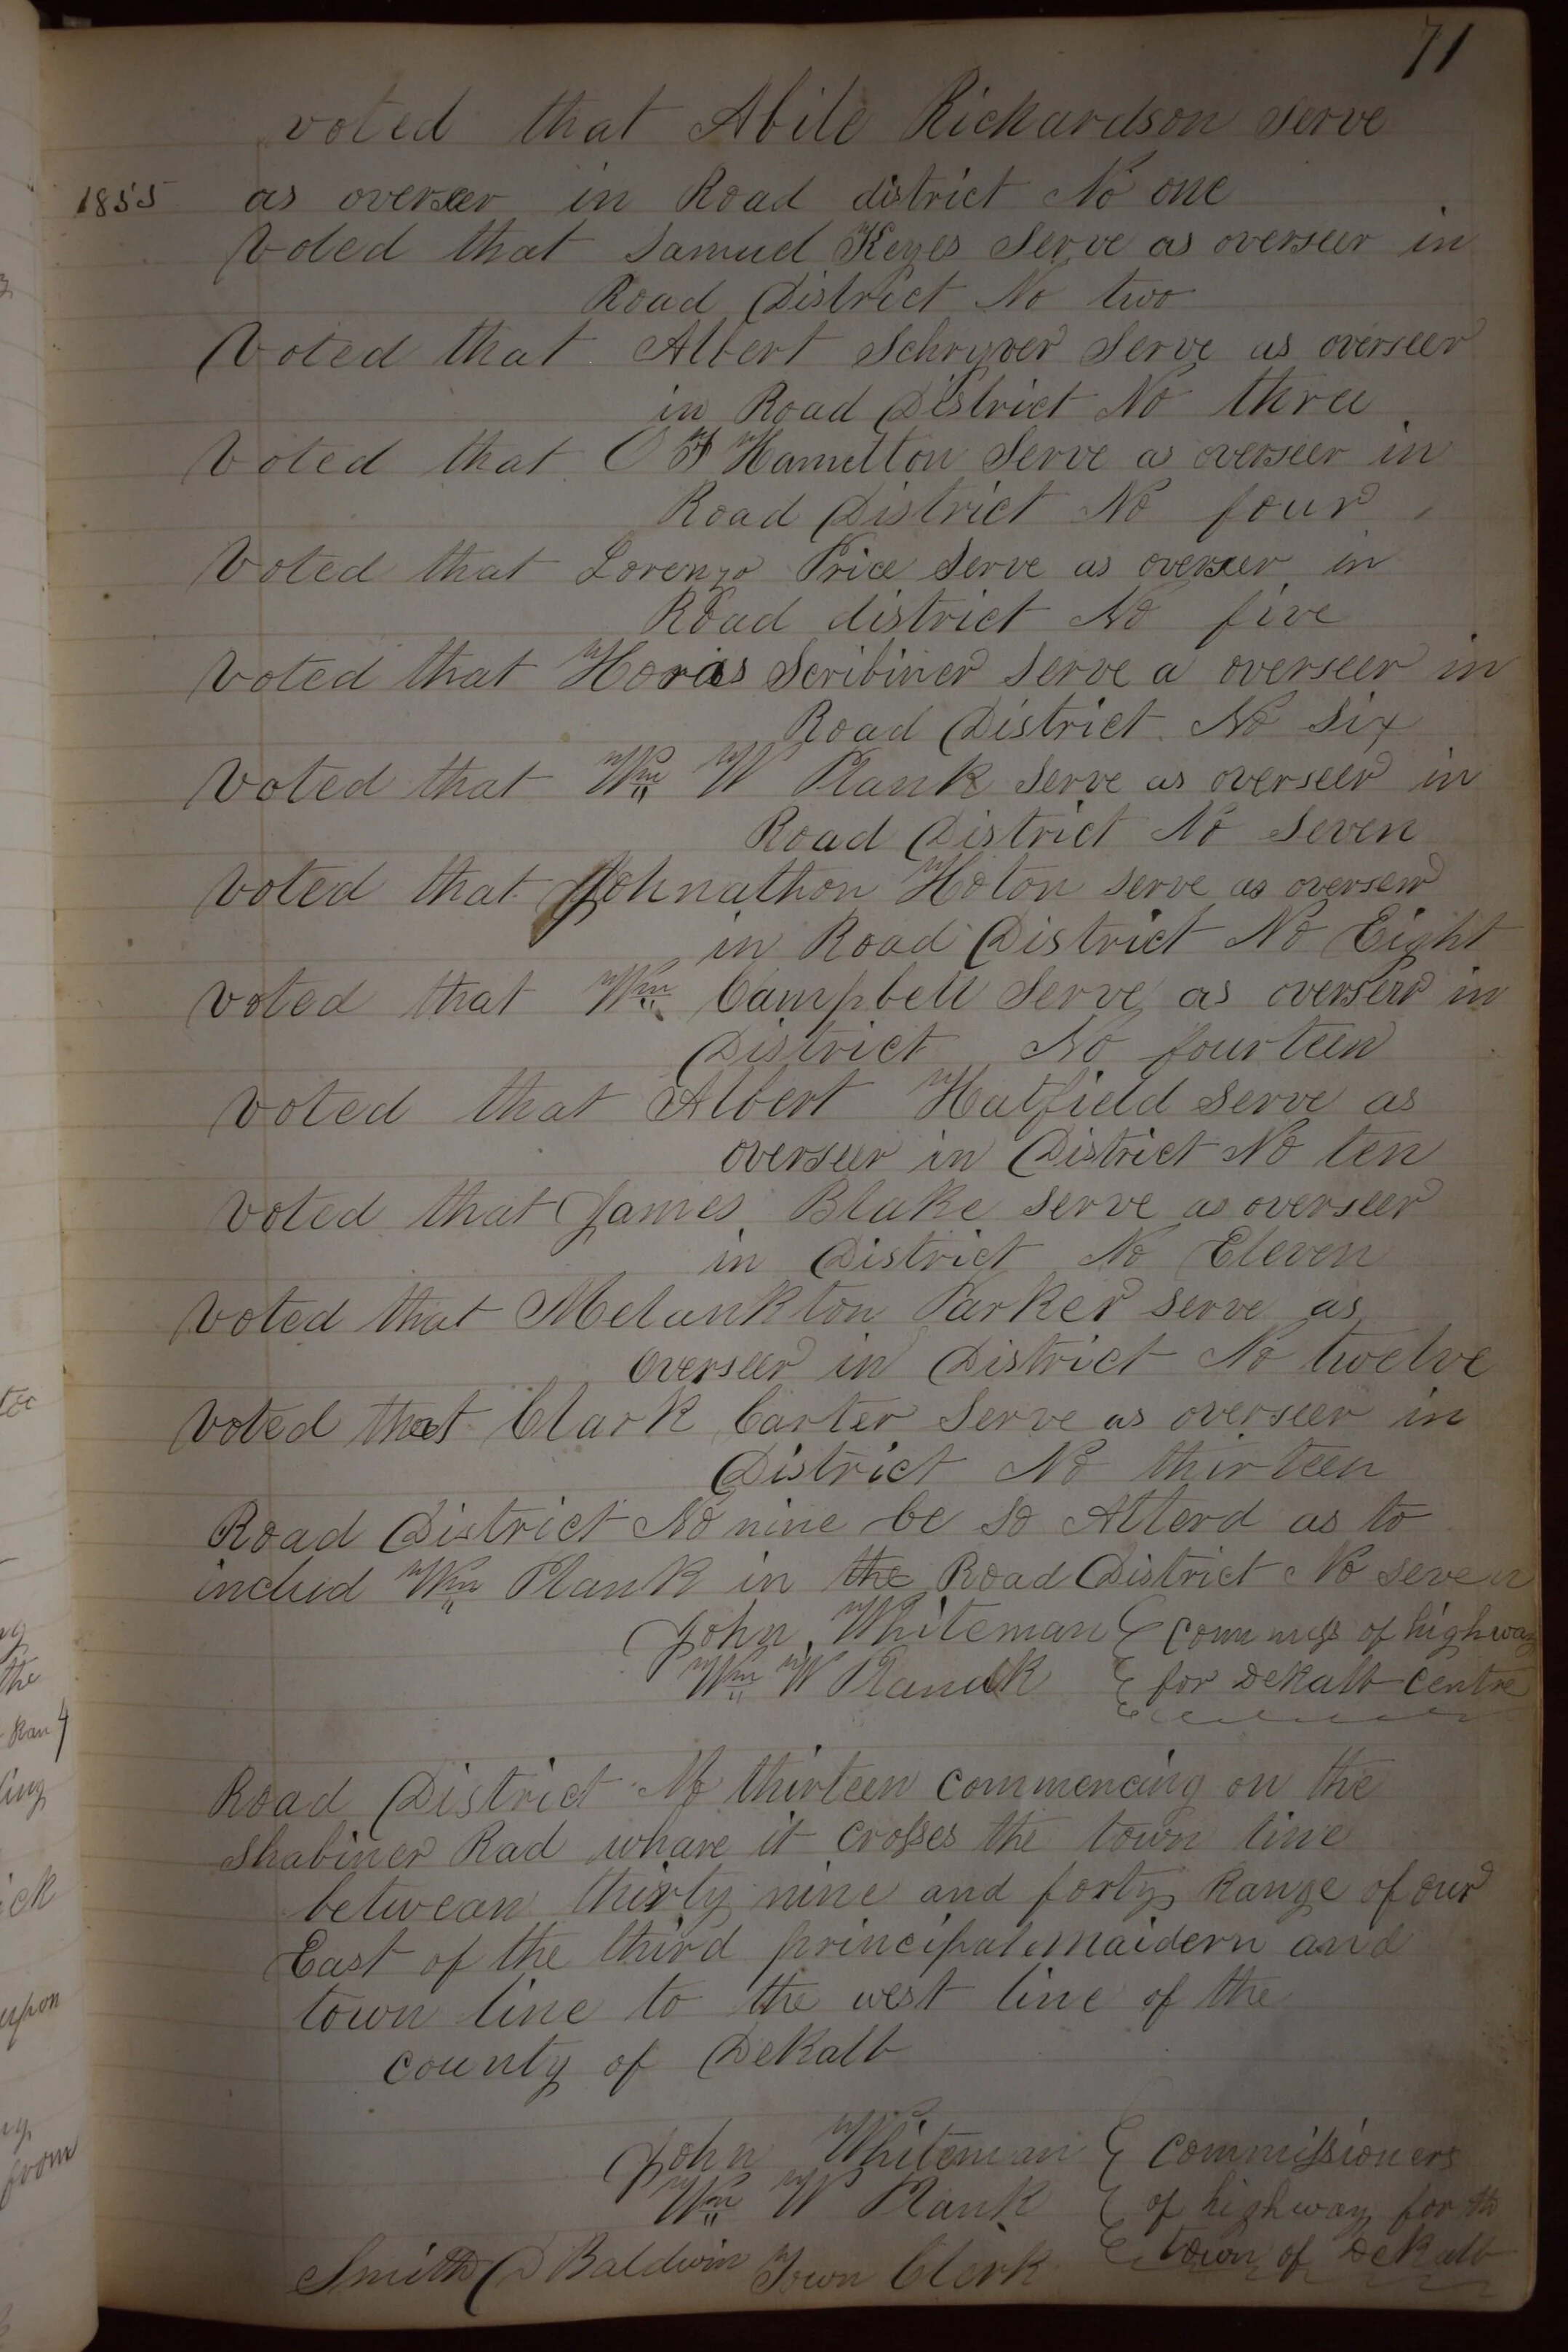 71
voted that Abile Rickardson Serve
1855 as overseer in Road district No one
Voted that Samuel Keyes Serve as overseer in
Road District No two
Voted that Albert Schryver Serve as overseer
in Road District No three
Voted that O Hamelton Serve as overseer in
Road District No four
Voted that Lorenzo Price Serve as overseer in
Road district No five
Voted that Horas Scribiner Serve a overseer in
Road District No Six
Voted that Wm W Plank Serve as overseer in
Road District No Seven
Voted that Johnathon Hoton serve as overseer
in Road District No Eight
Voted that Wm Campbell Serve as overseer in
District No fourteen
Voted that Albert Hatfield Serve as
overseer in District No ten
Voted that James Blake serve as overseer
in District No Eleven
Voted that Melankton Parker serve as
overseer in District No twelve
Voted that Clark Carter Serve as overseer in
District No thirteen
Road District No nine be so Atterd as to
includ Wm Plank in the Road District No seven
John Whiteman of highway
Wm W Planck for DeKalb Centre
Road District No thirteen commencing on the
Shabiner Rad whare it crosses the town line
betwean thirty nine and forty Range of our
East of the third principal maidern and
town line to the west line of the
county of DeKalb
John Whiteman Commissioners
Wm W Plank of highway for the
Smith D Baldwin Town Clerk town of DeKalb